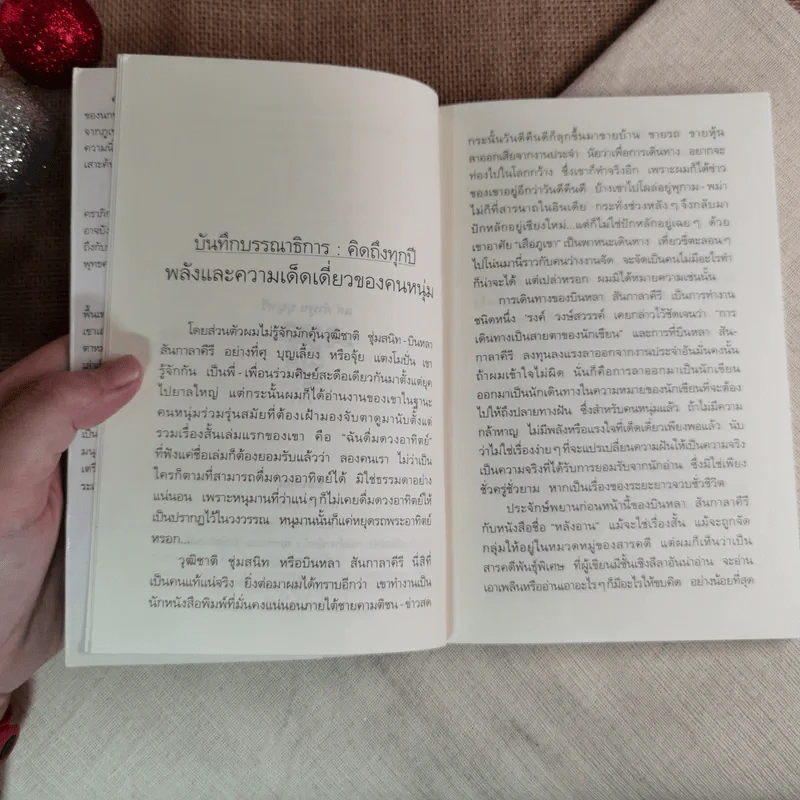 ของนก
จากภูเข
ความนี้
เสาะค้
คราภิก
อาจบัง
ถึงกับ
พุทธค
พื้นเท
เขาเส
ตาหม
บันทึกบรรณาธิการ : คิดถึงทุกปี
พลังและความเด็ดเดี่ยวของคนหนุ่ม
โดยส่วนตัวผมไม่รู้จักมักคุ้นวุฒิชาติ ชุ่มสนิท-บินหลา
สันกาลาคีรี อย่างที่ศุ บุญเลี้ยง หรือจุ้ย แตงโมปั่น เขา
รู้จักกัน เป็นพี่-เพื่อนร่วมศิษย์สะดือเดียวกันมาตั้งแต่ยุค
ไปยาลใหญ่ แต่กระนั้นผมก็ได้อ่านงานของเขาในฐานะ
คนหนุ่มร่วมรุ่นสมัยที่ต้องเฝ้ามองจับตาดูมานับตั้งแต่
รวมเรื่องสั้นเล่มแรกของเขา คือ “ฉันดื่มดวงอาทิตย์”
ที่ฟังแค่ชื่อเล่มก็ต้องยอมรับแล้วว่า ลองคนเรา ไม่ว่าเป็น
ใครก็ตามที่สามารถดื่มดวงอาทิตย์ได้ มิใช่ธรรมดาอย่าง
แน่นอน เพราะหนุมานที่ว่าแน่ๆ ก็ไม่เคยดื่มดวงอาทิตย์ให้
เป็นปรากฏไว้ในวงวรรณ หนุมานนั้นก็แค่หยุดรถพระอาทิตย์
หรอก...
วุฒิชาติ ชุ่มสนิท หรือบินหลา สันกาลาคีรี นี่สิที่
เป็นคนแท้แน่จริง ยิ่งต่อมาผมได้ทราบอีกว่า เขาทำงานเป็น
นักหนังสือพิมพ์ที่มั่นคงแน่นอนภายใต้ชายคามติชน-ข่าวสด
กระนั้นวันดีคืนดีก็ลุกขึ้นมาขายบ้าน ขายรถ ขายหุ้น
ลาออกเสียจากงานประจำ นัยว่าเพื่อการเดินทาง อยากจะ
ท่องไปในโลกกว้าง ซึ่งเขาก็ทำจริงอีก เพราะผมก็ได้ข่าว
ของเขาอยู่อีกว่าวันดีคืนดี บ้างเขาไปโผล่อยู่พุกาม-พม่า
ไม่ก็ที่สารนาถในอินเดีย กระทั่งช่วงหลังๆ จึงกลับมา
ปักหลักอยู่เชียงใหม่...แต่ก็ไม่ใช่ปักหลักอยู่เฉยๆ ด้วย
เขาอาศัย “เสือภูเขา” เป็นพาหนะเดินทาง เที่ยวขี่ตะลอนๆ
ไปโน่นมานี่ราวกับคนว่างงานจัด จะจัดเป็นคนไม่มีอะไรทำ
ก็น่าจะได้ แต่เปล่าหรอก ผมมิได้หมายความเช่นนั้น
การเดินทางของบินหลา สันกาลาคีรี เป็นการทำงาน
ชนิดหนึ่ง “รงค์ วงษ์สวรรค์ เคยกล่าวไว้ชัดเจนว่า “การ
เดินทางเป็นสายตาของนักเขียน” และการที่บินหลา สัน-
กาลาคีรี ลงทุนลงแรงลาออกจากงานประจำอันมั่นคงนั้น
ถ้าผมเข้าใจไม่ผิด นั่นก็คือการลาออกมาเป็นนักเขียน
ออกมาเป็นนักเดินทางในความหมายของนักเขียนที่จะต้อง
ไปให้ถึงปลายทางฝัน ซึ่งสำหรับคนหนุ่มแล้ว ถ้าไม่มีความ
กล้าหาญ ไม่มีพลังหรือแรงใจที่เด็ดเดี่ยวเพียงพอแล้ว นับ
ว่าไม่ใช่เรื่องง่ายๆ ที่จะแปรเปลี่ยนความฝันให้เป็นความจริง
เป็นความจริงที่ได้รับการยอมรับจากนักอ่าน ซึ่งมิใช่เพียง
ชั่วครู่ชั่วยาม หากเป็นเรื่องของระยะยาวจวบชั่วชีวิต
ประจักษ์พยานก่อนหน้านี้ของบินหลา สันกาลาคีรี
กับหนังสือชื่อ “หลังอาน” แม้จะใช่เรื่องสั้น แม้จะถูกจัด
กลุ่มให้อยู่ในหมวดหมู่ของสารคดี แต่ผมก็เห็นว่าเป็น
สารคดีพันธุ์พิเศษ ที่ผู้เขียนมีชั้นเชิงลีลาอันน่าอ่าน จะอ่าน
เอาเพลินหรืออ่านเอาอะไรๆ ก็มีอะไรให้ขบคิด อย่างน้อยที่สุด